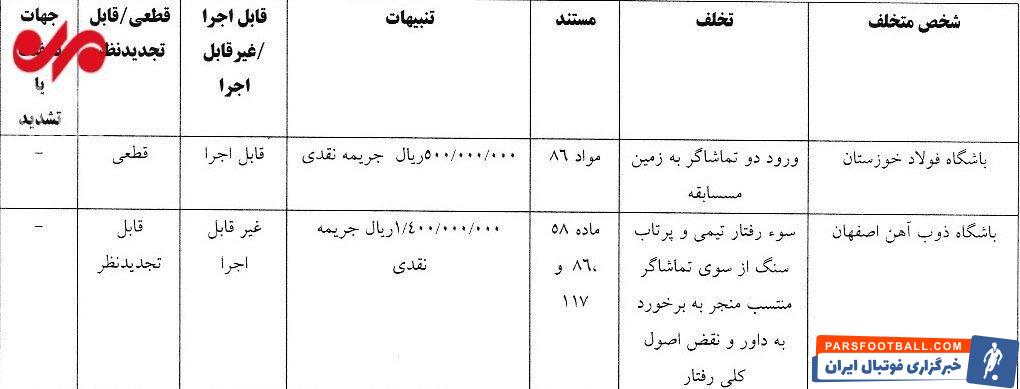 شخص متخلف
تخلف
مستند
تنبیهات
قابل اجرا
/غیرقابل
اجرا
قطعی/قابل
تجدیدنظر
جهات
یا
تشدید
باشگاه فولاد خوزستان
ورود دو تماشاگر به زمین
مسسابقه
مواد ۸۶
۵۰۰/۰۰۰/۰۰۰ریال جریمه نقدی
قابل اجرا
قطعی
-
باشگاه ذوب آهن اصفهان
سوء رفتار تیمی و پرتاب
سنگ از سوی تماشاگر
منتسب منجر به برخورد
به داور و نقض اصول
کلی رفتار
ماده ۵۸
،۸۶ و
۱۱۷
۱/۴۰۰/۰۰۰/۰۰۰ریال جریمه
نقدی
غیر قابل
اجرا
قابل
تجدیدنظر
-
PARSFOOTBALL.COM
خبرگزاری فوتبال ایران